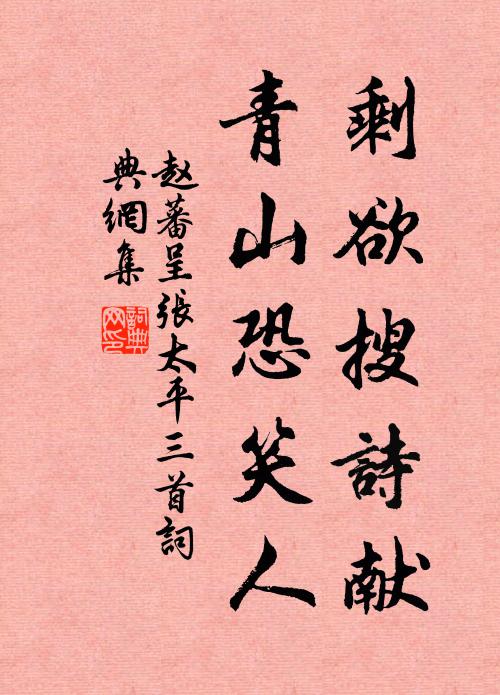 剩欲搜詩献
青山恐笑人
赵蕃呈張太平三首詞
典網集
詞典网印